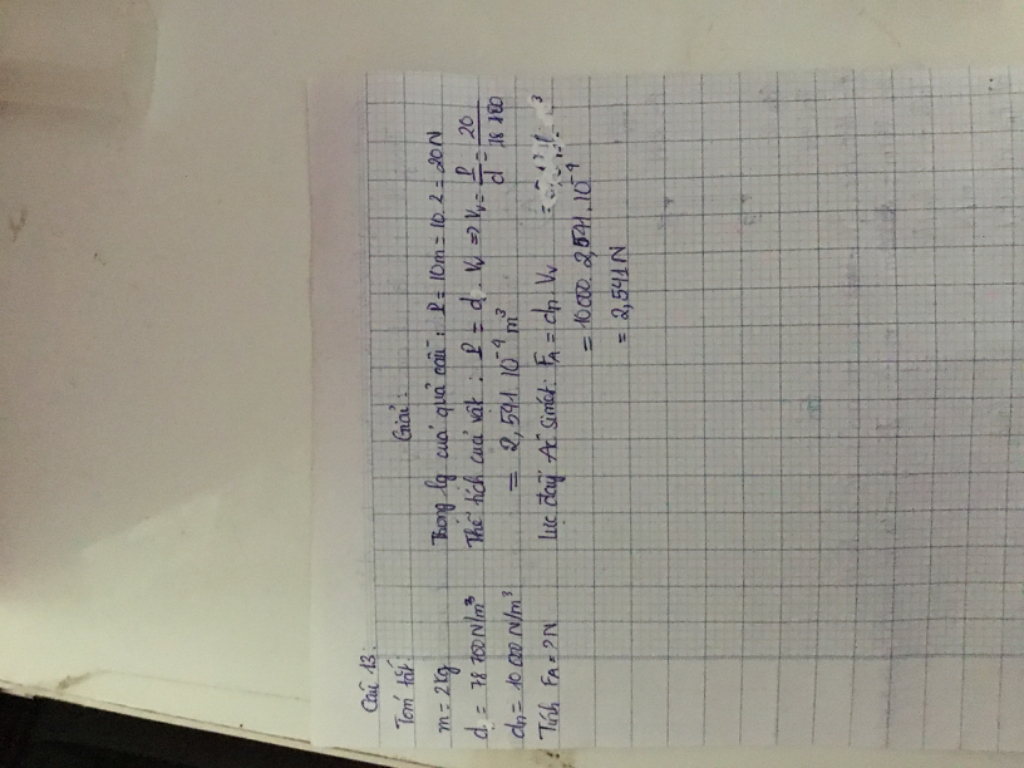 Câu 13:
Tóm tắt:
m = 2kg
d = 78 700 N/m³
dn = 10 000 N/m³
Tính FA = ? N
Giải:
Trọng lg của quả cầu: P = 10m = 10.2 = 20N
Thể tích của vật: P = d . Vv => Vv = P/d = 20/78 700
= 2,541.10⁻⁴ m³
Lực đẩy Ác simét: FA = dn Vv
= 10000. 2,541.10⁻⁴
= 2,541N